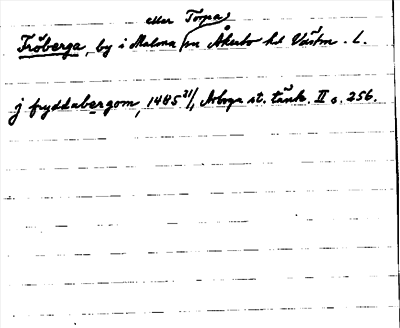 eller Torpa
Fröberga, by i Malma sn Åkerbo hd Västm. L.
j fryddabergom, 1485 21/1, Arboga st. tänk. II s. 256.